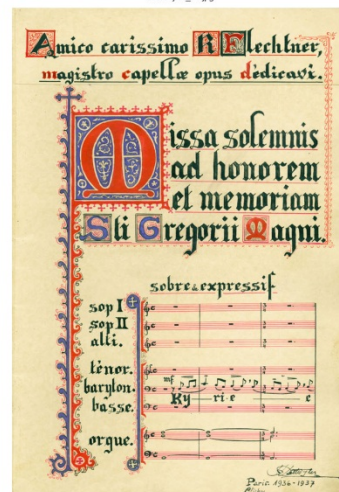 Amico carissimo R Flechtner,
magistro capellæ opus dedicavi.
Missa solemnis
ad honorem
et memoriam
Sti Gregorii Magni.
sobre & expressif
sop I
sop II
alti.
ténor.
mf
barylon.
Ky ri - e e
basse.
orgue.
Paris 1936-1937